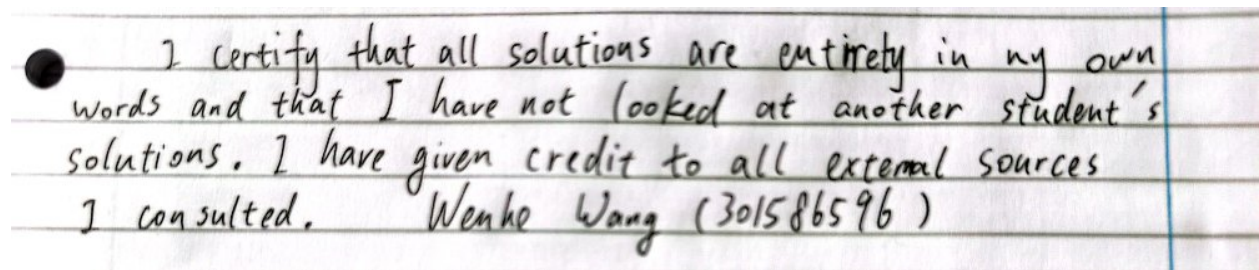 I certify that all solutions are entirely in my own
words and that I have not looked at another student's
solutions. I have given credit to all external sources
I consulted. Wenho Wang (301586596)